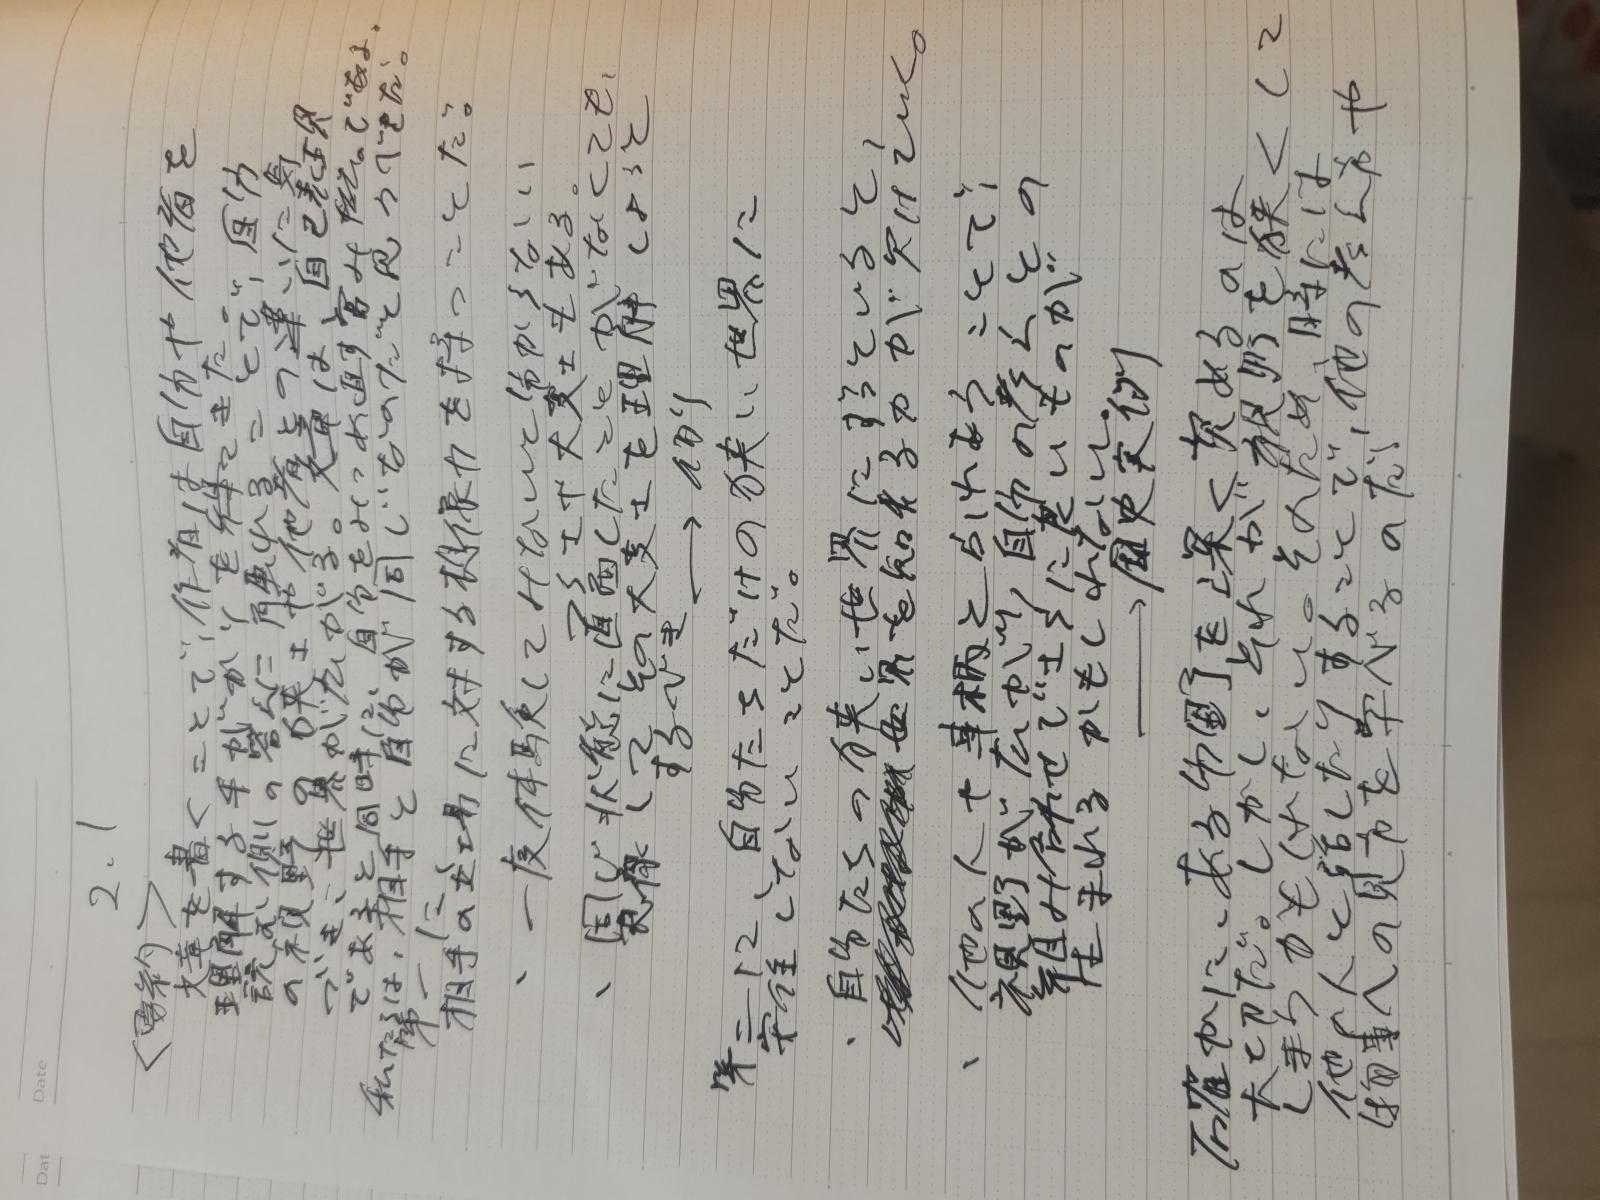 Date
Dat
2.1
<要約>
文章を書くことで、作者は自分や他者を
理解する手がかりを得てきた。
読み側の営みに両車ることで、自分
の視野の狭さや他者との違いに気
づき、世界がたひがる。文章は自己表現
であると同時に、自分をみつめ直す営み
私たちは、相手と自分が同じなのだと思ってきた。
第一に
相手の立場に対する想像力を持つことだ。
、一度体験してみないと分からない
つらさや大変さもある。
、同じ状態に直面したことがなくても、
想像してその大変さを理解しようと
するべき → 例)
第二に 自分たちだけの狭い世界に
安住しないことだ。
・自分たちの狭い世界にすっていると、
世界を知る力が欠けていく。
、他の人や事柄とふれあうことで、
視野が広がり、自分の考えとの
組み合わせでさらに良いものが
生まれるかもしれない。
→ 歴史実例)
確かに、ある分野を深く究めるのは
大切だ。しかし、それが視野を狭くして
しまうかもしれない。そのため、時には
他の人と話したりすることで、他の考え方や
物事への見方を学べるのだ。